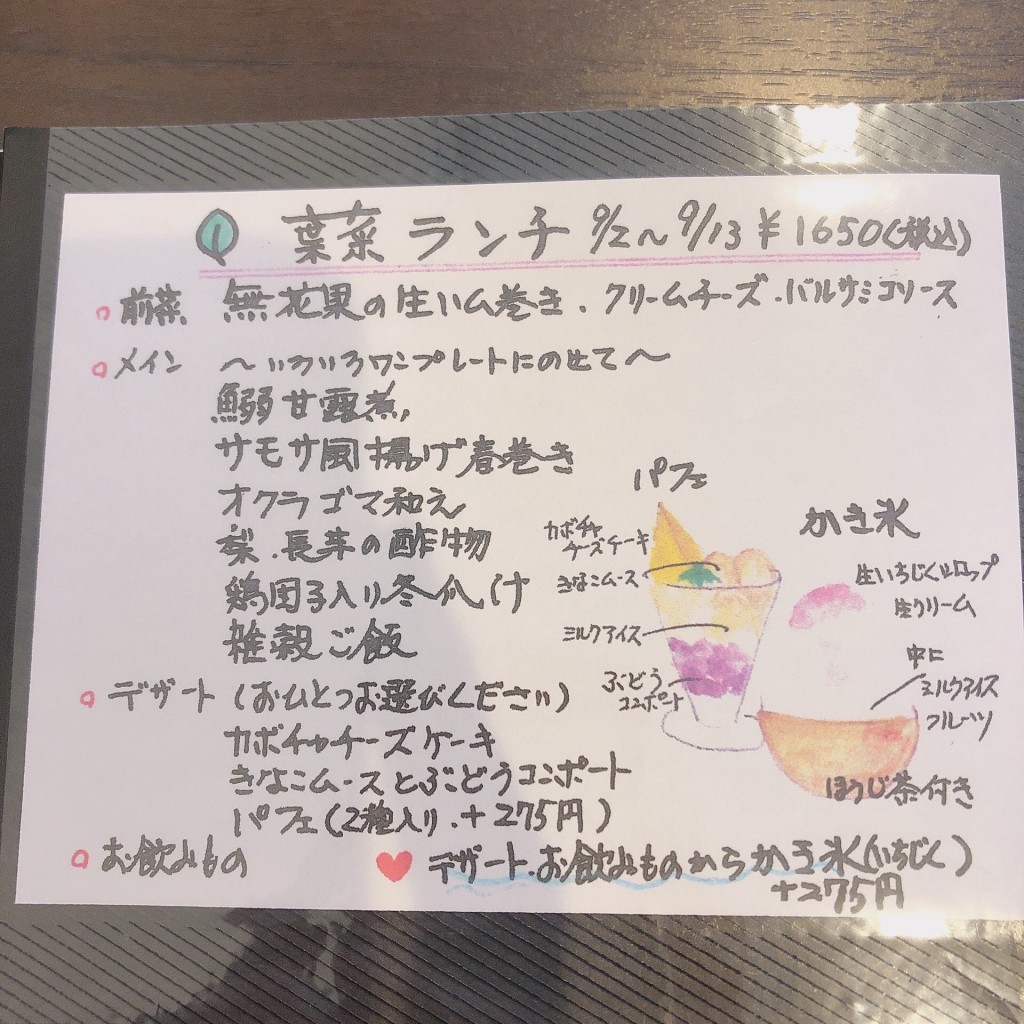 葉菜 ランチ 9/2〜9/13 ¥1650(税込)
前菜 無花果の生ハム巻き・クリームチーズ・バルサミコソース
メイン 〜いろいろワンプレートにのせて〜
鰯甘露煮
サモサ風揚げ春巻き
オクラゴマ和え
梨・長芋の酢物
鶏団子入り冬瓜汁
雑穀ご飯
デザート(おひとつお選びください)
カボチャチーズケーキ
きなこムースとぶどうコンポート
パフェ(2種入り・+275円)
お飲みもの
♥ デザート・お飲みものからかき氷(いちじく)
+275円
パフェ
カボチャ
チーズケーキ
きなこムース
ミルクアイス
ぶどう
コンポート
かき氷
生いちじくシロップ
生クリーム
中に
ミルクアイス
フルーツ
ほうじ茶付き